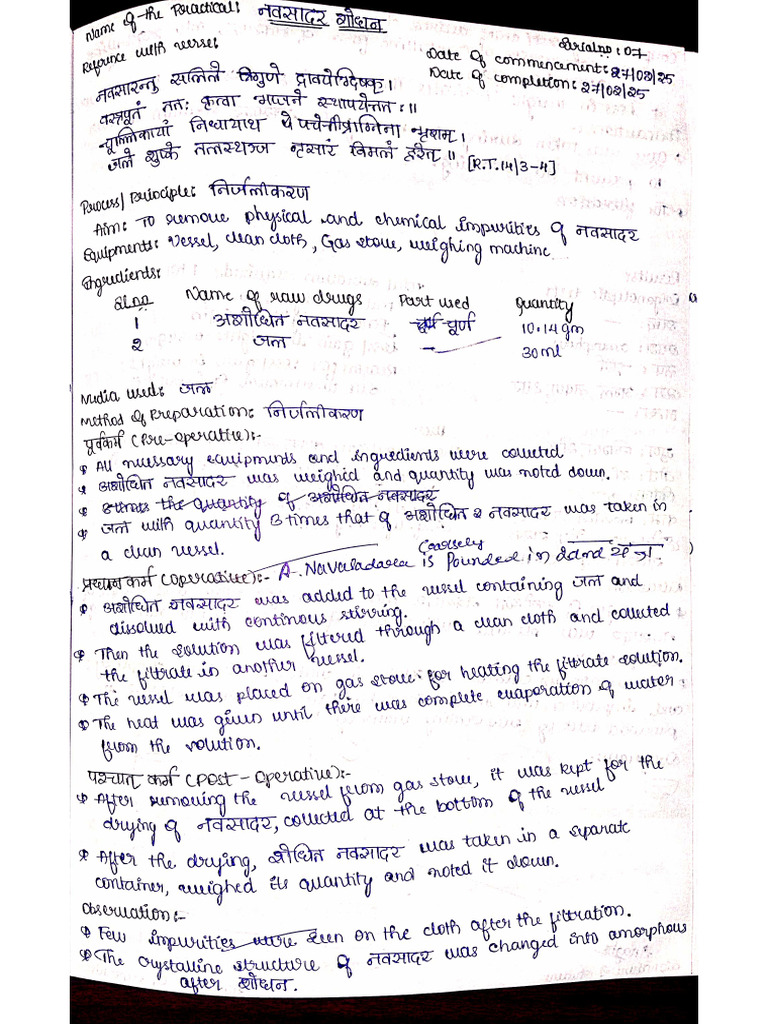 Name of the Practical: नवसादर शोधन
Serial no: 07
Refernce with verse:
Date of commencement: 27/02/25
Date of completion: 27/02/25
नवसारन्तु सलिले त्रिगुणे द्रावयेद्भिषक् ।
वस्त्रपूतं ततः कृत्वा भाजने स्थापयेत्ततः ॥
चूल्लिकायां निधायाथ पचेत्तीव्राग्निना भृशम् ।
जले शुष्के तलस्थञ्ज नृसारं विमलं हरेत् ॥ [R.T.14/3-4]
Process/Principle: निर्जलीकरण
Aim: To remove physical and chemical impurities of नवसादर
Equipments: Vessel, clean cloth, Gas stove, weighing machine
Ingredients:
Sl.no Name of raw drugs Part used Quantity
1 अशोधित नवसादर चूर्ण 10.14gm
2 जल — 30ml
Media used: जल
Method of Preparation: निर्जलीकरण
पूर्वकर्म (Pre-operative):-
All necessary equipments and ingredients were collected
अशोधित नवसादर was weighed and quantity was noted down.
3 times the quantity of अशोधित नवसादर
जल with quantity 3 times that of अशोधित नवसादर was taken in
a clean vessel.
प्रधान कर्म (Operative):- A. Navasadara is Coarsely Pounded in
अशोधित नवसादर was added to the vessel containing जल and
dissolved with continous stirring.
Then the solution was filtered through a clean cloth and collected
the filtrate in another vessel.
The vessel was placed on gas stove for heating the filtrate solution.
The heat was given until there was complete evaporation of water
from the solution.
पश्चात् कर्म (Post-Operative):-
After removing the vessel from gas stove, it was kept for the
drying of नवसादर, collected at the bottom of the vessel
After the drying, शोधित नवसादर was taken in a separate
container, weighed its quantity and noted it down.
Observation:-
Few impurities were seen on the cloth after the filtration.
The crystalline structure of नवसादर was changed into amorphous
after शोधन.